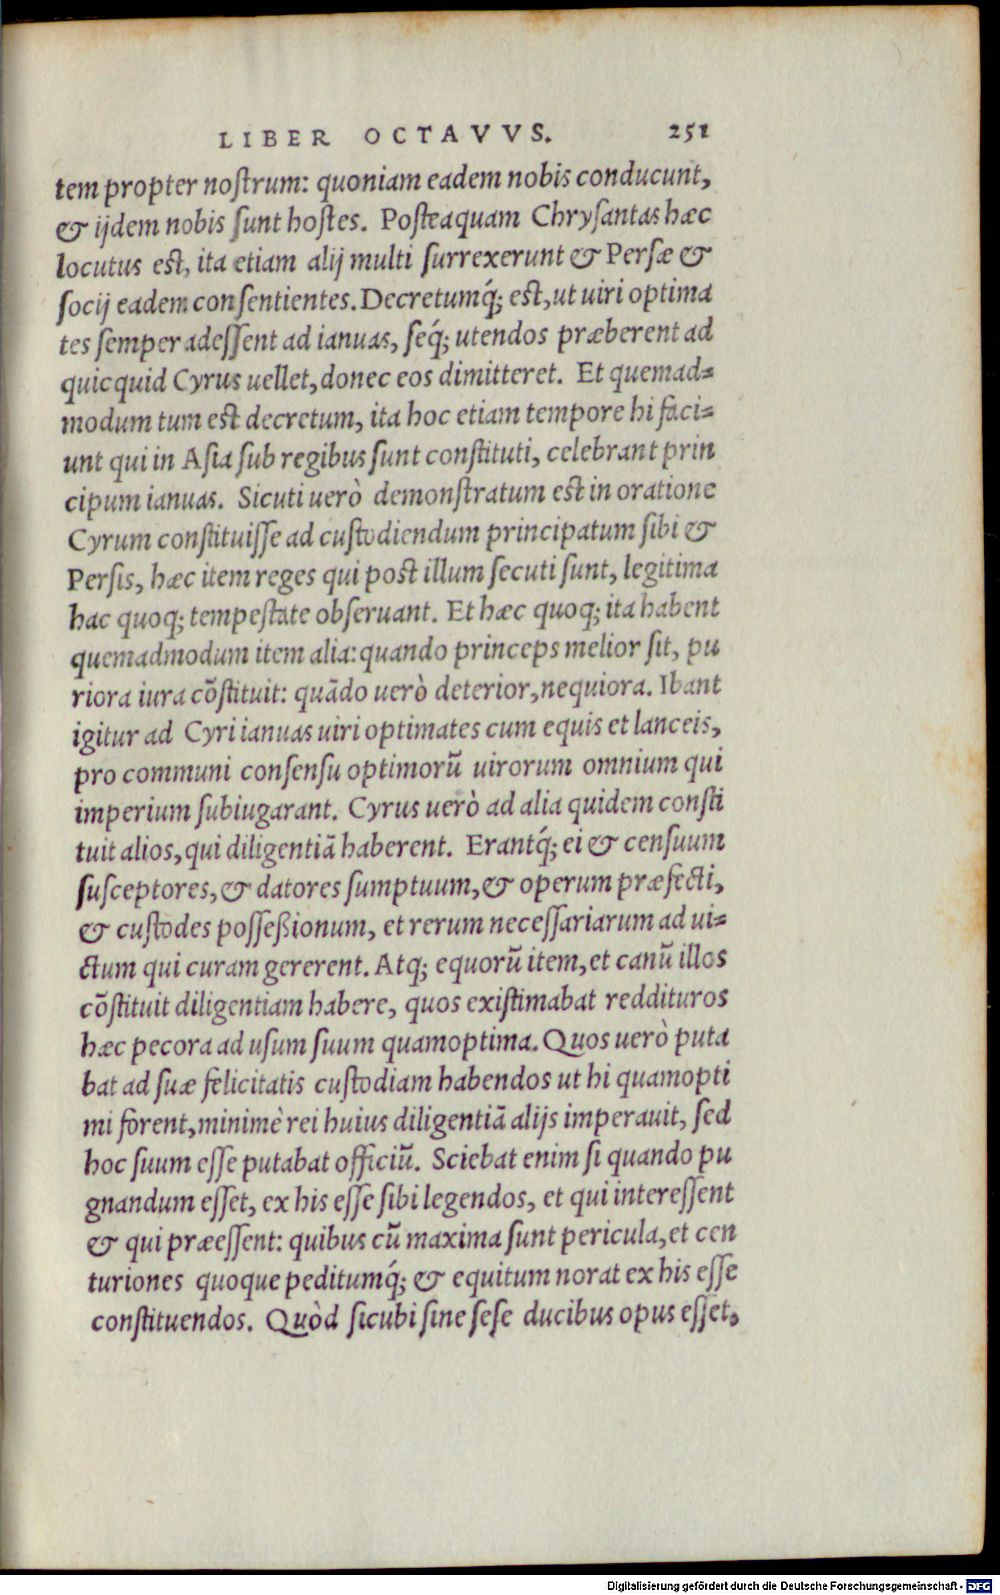 LIBER OCTAVVS. 251
tem propter nostrum: quoniam eadem nobis conducunt,
& ijdem nobis sunt hostes. Posteaquam Chrysantas hæc
locutus est, ita etiam alij multi surrexerunt & Persæ &
socij eadem consentientes. Decretumq́; est, ut uiri optima
tes semper adessent ad ianuas, seq́; utendos præberent ad
quicquid Cyrus uellet, donec eos dimitteret. Et quemad=
modum tum est decretum, ita hoc etiam tempore hi faci=
unt qui in Asia sub regibus sunt constituti, celebrant prin
cipum ianuas. Sicuti uerò demonstratum est in oratione
Cyrum constituisse ad custodiendum principatum sibi &
Persis, hæc item reges qui post illum secuti sunt, legitima
hac quoq; tempestate obseruant. Et hæc quoq; ita habent
quemadmodum item alia: quando princeps melior sit, pu
riora iura cõstituit: quãdo uerò deterior, nequiora. Ibant
igitur ad Cyri ianuas uiri optimates cum equis et lanceis,
pro communi consensu optimorũ uirorum omnium qui
imperium subiugarant. Cyrus uerò ad alia quidem consti
tuit alios, qui diligentiã haberent. Erantq́; ei & censuum
susceptores, & datores sumptuum, & operum præfecti,
& custodes posseßionum, et rerum necessariarum ad ui=
ctum qui curam gererent. Atq; equorũ item, et canũ illos
cõstituit diligentiam habere, quos existimabat reddituros
hæc pecora ad usum suum quamoptima. Quos uerò puta
bat ad suæ felicitatis custodiam habendos ut hi quamopti
mi forent, minimè rei huius diligentiã alijs imperauit, sed
hoc suum esse putabat officiũ. Sciebat enim si quando pu
gnandum esset, ex his esse sibi legendos, et qui interessent
& qui præessent: quibus cũ maxima sunt pericula, et cen
turiones quoque peditumq́; & equitum norat ex his esse
constituendos. Quòd sicubi sine sese ducibus opus esset,
Digitalisierung gefördert durch die Deutsche Forschungsgemeinschaft - DFG